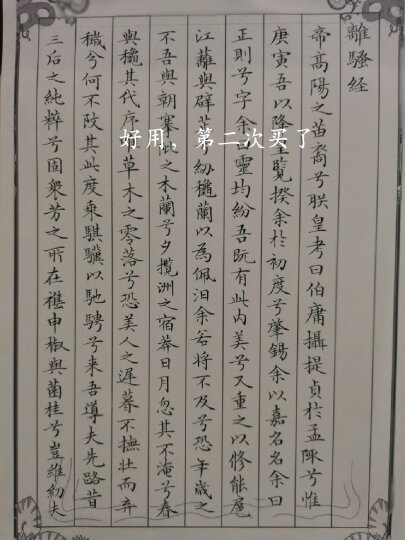 離騷經
帝高陽之苗裔兮朕皇考曰伯庸攝提貞於孟陬兮惟
庚寅吾以降皇覽揆余於初度兮肇錫余以嘉名名余曰
正則兮字余靈均紛吾既有此內美兮又重之以脩能扈
江蘺與辟兮紉穐蘭以為佩汩余若將不及兮恐年歲之
不吾與朝搴之木蘭兮夕攬洲之宿莽日月忽其不淹兮春
與穐其代序草木之零落兮恐美人之遲暮不撫壯而弃
穢兮何不改其此度乘騏驥以馳騁兮来吾導夫先路昔
三后之純粹兮固衆芳之所在襍申椒與菌桂兮豈維紉夫
好用，第二次买了